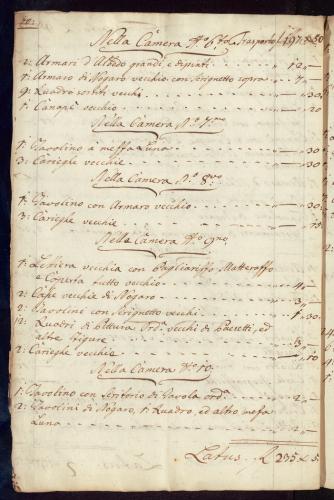 Nella Camera N.o 6.to Trasporto £ 1975 x 50
2: Armari d'Albedo grandi, e dipinti 12,-
1: Armaro di Nogaro vecchio con scrignetto sopra 7,-
9: Quadri sortiti vecchi ,,30
1: Canapè vecchio ,,20
Nella Camera N.o 7.mo
1: Tavolino a mezza Luna ,,30
3: Carieghe vecchie ,,30
Nella Camera N.o 8.vo
1: Tavolino con Armaro vecchio ,,30
3: Carieghe vecchie ,,15
Nella Camera N.o 9.no
1: Lettiera vecchia con Pagliarizzo Matterasso
e Coperta tutto vecchio 4,-
2: Casse vecchie di Nogaro 3,-
2: Tavolini con scrignetto vecchi 1,,30
12: Quadri di pittura Ord.a vecchi di Paesetti, ed
altre figure 3,-
2: Carieghe vecchie ,,10
Nella Camera N.o 10
1: Tavolino con scritorio di Tavola ord.a 2,-
2: Tavolini di Nogaro, 1: Quadro, ed altro mezza
Luna 2,-
Latus £ 235 x 5